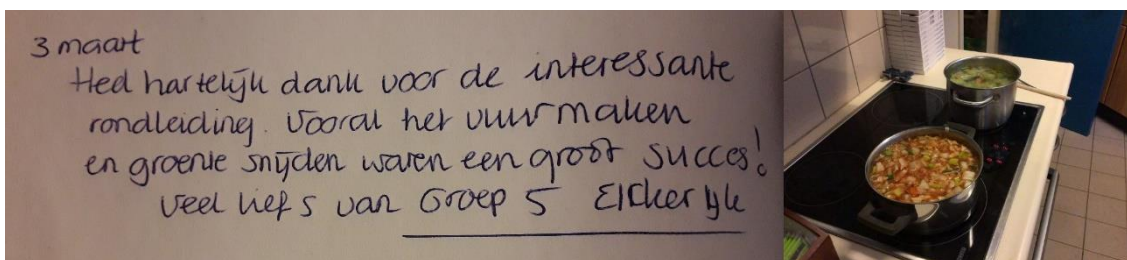 3 maart
Heel hartelijk dank voor de interessante
rondleiding. Vooral het vuur maken
en groente snijden waren een groot succes!
Veel liefs van Groep 5 Elckerlyc